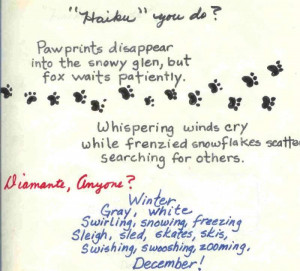 "Haiku" you do?
Pawprints disappear
into the snowy glen, but
fox waits patiently.
Whispering winds cry
while frenzied snowflakes scatte
searching for others.
Diamante, Anyone?
Winter
Gray, white
Swirling, snowing, freezing
Sleigh, sled, skates, skis,
Swishing, swooshing, zooming,
December!